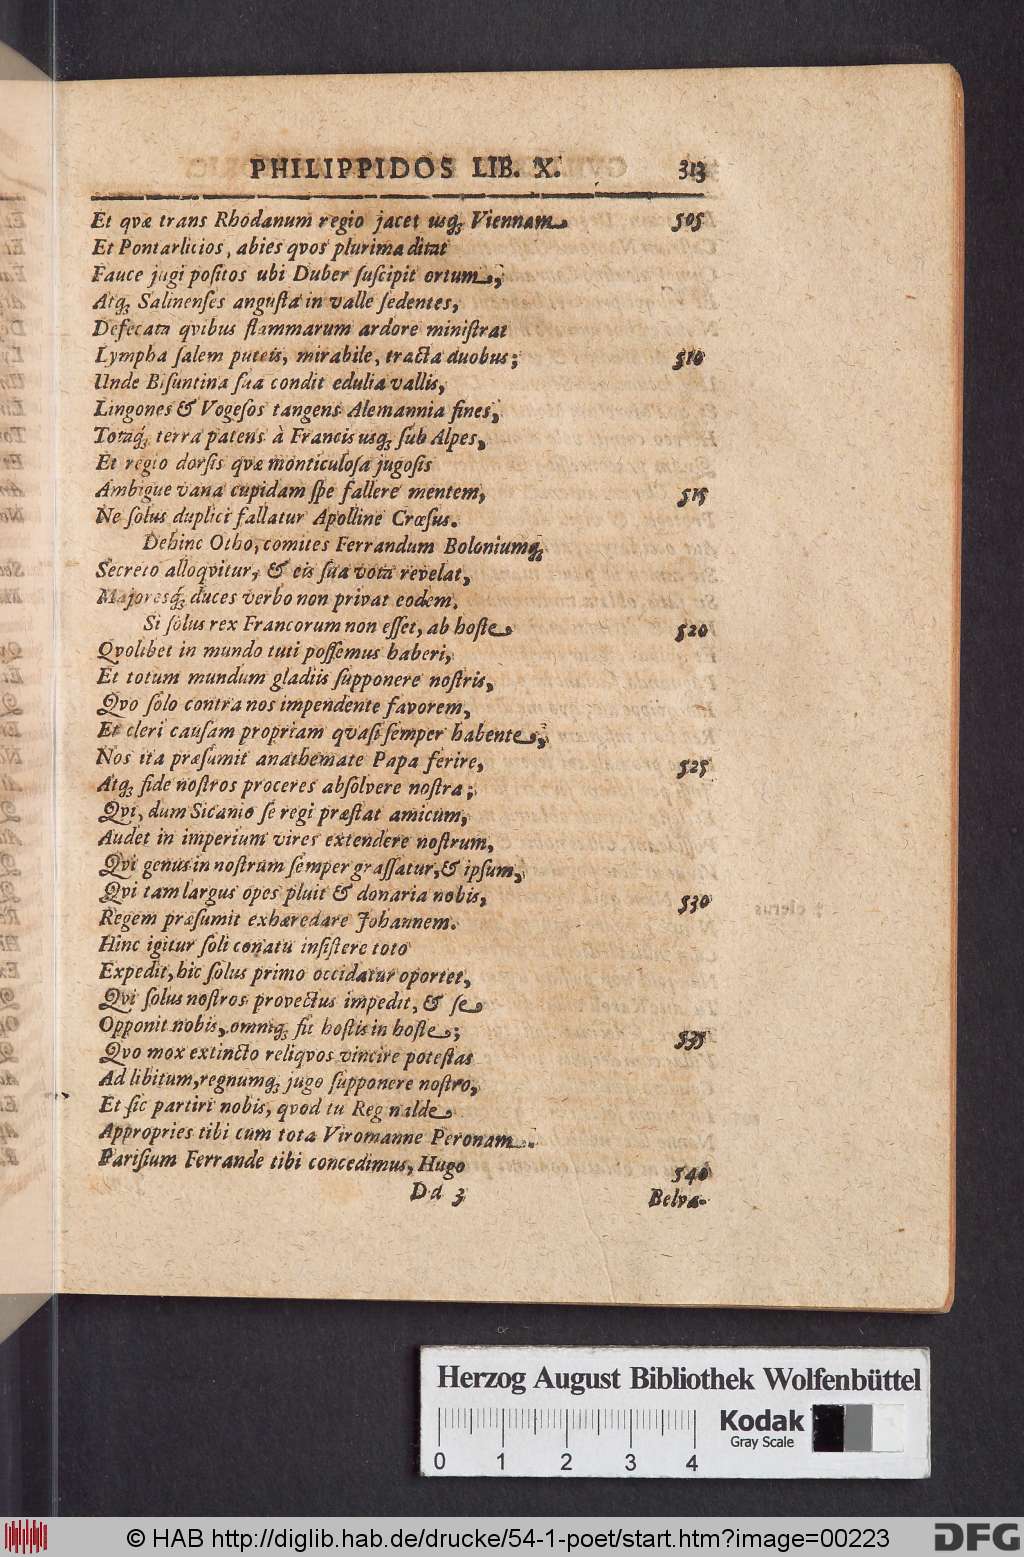 PHILIPPIDOS LIB. X. 313
Et qvæ trans Rhodanum regio jacet usq; Viennam 505
Et Pontarlicios, abies qvos plurima ditat
Fauce jugi poſitos ubi Duber ſuſcipit ortum,
Atq; Salinenſes anguſta in valle ſedentes,
Defecata qvibus flammarum ardore miniſtrat
Lympha ſalem puteis, mirabile, tracta duobus; 510
Unde Biſuntina ſua condit edulia vallis,
Lingones & Vogeſos tangens Alemannia fines,
Totaq; terra patens à Francis usq; ſub Alpes,
Et regio dorſis qvæ monticuloſa jugoſis
Ambigue vana cupidam ſpe fallere mentem, 515
Ne ſolus duplici fallatur Apolline Crœſus.
Dehinc Otho, comites Ferrandum Boloniumq;
Secreto alloqvitur, & eis ſua vota revelat,
Majoresq; duces verbo non privat eodem.
Si ſolus rex Francorum non eſſet, ab hoſte 520
Qvolibet in mundo tuti poſſemus haberi,
Et totum mundum gladiis ſupponere noſtris,
Qvo ſolo contra nos impendente favorem,
Et cleri cauſam propriam qvaſi ſemper habente,
Nos ita præſumit anathemate Papa ferire, 525
Atq; fide noſtros proceres abſolvere noſtra;
Qvi, dum Sicanio ſe regi præſtat amicum,
Audet in imperium vires extendere noſtrum,
Qvi genus in noſtrum ſemper graſſatur, & ipſum,
Qvi tam largus opes pluit & donaria nobis, 530
Regem præſumit exhæredare Johannem.
Hinc igitur ſoli conatu inſiſtere toto
Expedit, hic ſolus primo occidatur oportet,
Qvi ſolus noſtros provectus impedit, & ſe
Opponit nobis, omniq; fit hoſtis in hoſte; 535
Qvo mox extincto reliqvos vincire poteſtas
Ad libitum, regnumq; jugo ſupponere noſtro,
Et ſic partiri nobis, qvod tu Reginalde
Appropries tibi cum tota Viromanne Peronam.
Pariſium Ferrande tibi concedimus, Hugo 540
Dd 3 Belva-
Herzog August Bibliothek Wolfenbüttel
Kodak
Gray Scale
0 1 2 3 4
© HAB http://diglib.hab.de/drucke/54-1-poet/start.htm?image=00223
DFG